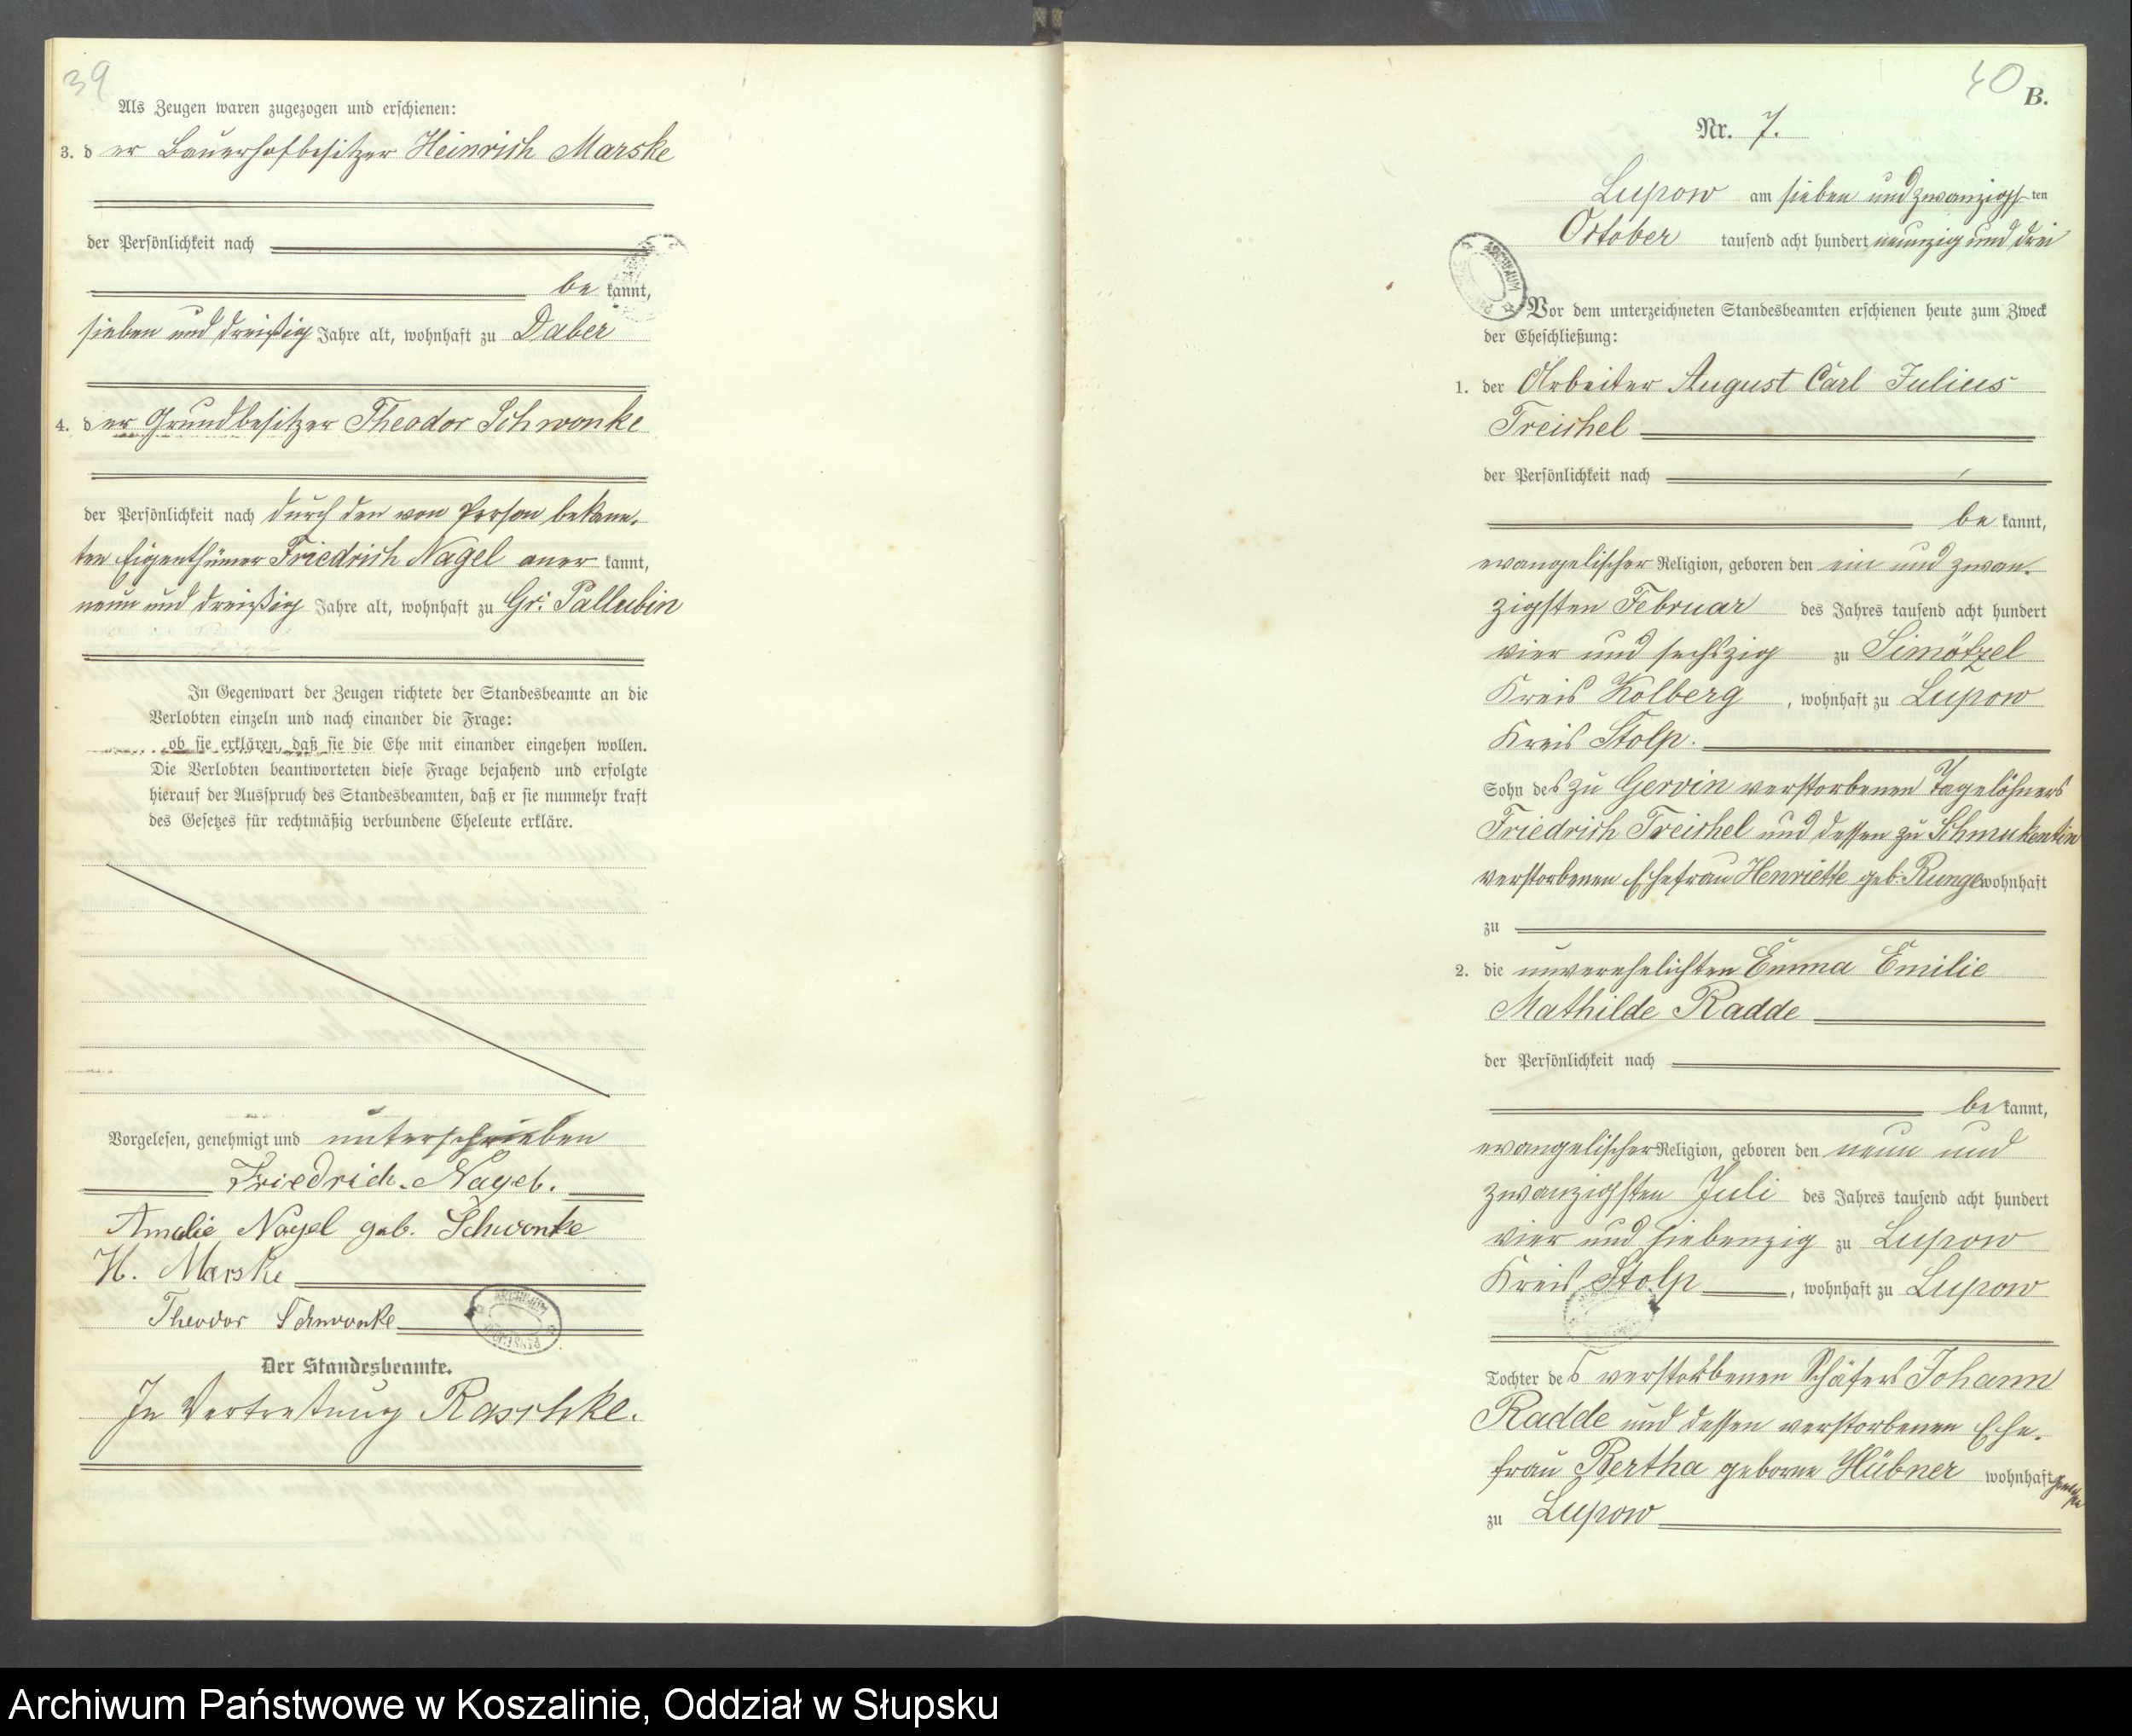 39
Als Zeugen waren zugezogen und erschienen:
3. der Bauerhofbesitzer Heinrich Marske
der Persönlichkeit nach
be kannt,
sieben und dreißig Jahre alt, wohnhaft zu Daber
4. der Grundbesitzer Theodor Schwonke
der Persönlichkeit nach durch den von Person bekann-
ten Eigenthümer Friedrich Nagel aner kannt,
neun und dreißig Jahre alt, wohnhaft zu Gr: Pallubin
In Gegenwart der Zeugen richtete der Standesbeamte an die
Verlobten einzeln und nach einander die Frage:
ob sie erklären, daß sie die Ehe mit einander eingehen wollen.
Die Verlobten beantworteten diese Frage bejahend und erfolgte
hierauf der Ausspruch des Standesbeamten, daß er sie nunmehr kraft
des Gesetzes für rechtmäßig verbundene Eheleute erkläre.
Vorgelesen, genehmigt und unterschrieben
Friedrich Nagel.
Amalie Nagel geb. Schwonke
H. Marske
Theodor Schwonke
Der Standesbeamte.
In Vertretung Raschke.
40
B.
Nr. 7.
Lupow am sieben und zwanzigsten
October tausend acht hundert neunzig und drei
Vor dem unterzeichneten Standesbeamten erschienen heute zum Zweck
der Eheschließung:
1. der Arbeiter August Carl Julius
Treichel
der Persönlichkeit nach
be kannt,
evangelischer Religion, geboren den ein und zwan-
zigsten Februar des Jahres tausend acht hundert
vier und sechszig zu Simötzel
Kreis Kolberg, wohnhaft zu Lupow
Kreis Stolp.
Sohn des zu Gervin verstorbenen Tagelöhners
Friedrich Treichel und dessen zu Schmukentin
verstorbenen Ehefrau Henriette geb. Runge wohnhaft
zu
2. die unverehelichten Emma Emilie
Mathilde Radde
der Persönlichkeit nach
be kannt,
evangelischer Religion, geboren den neun und
zwanzigsten Juli des Jahres tausend acht hundert
vier und siebenzig zu Lupow
Kreis Stolp, wohnhaft zu Lupow
Tochter des verstorbenen Schäfers Johann
Radde und dessen verstorbenen Ehe-
frau Bertha geborne Hübner wohnhaft
zu Lupow
Archiwum Państwowe w Koszalinie, Oddział w Słupsku